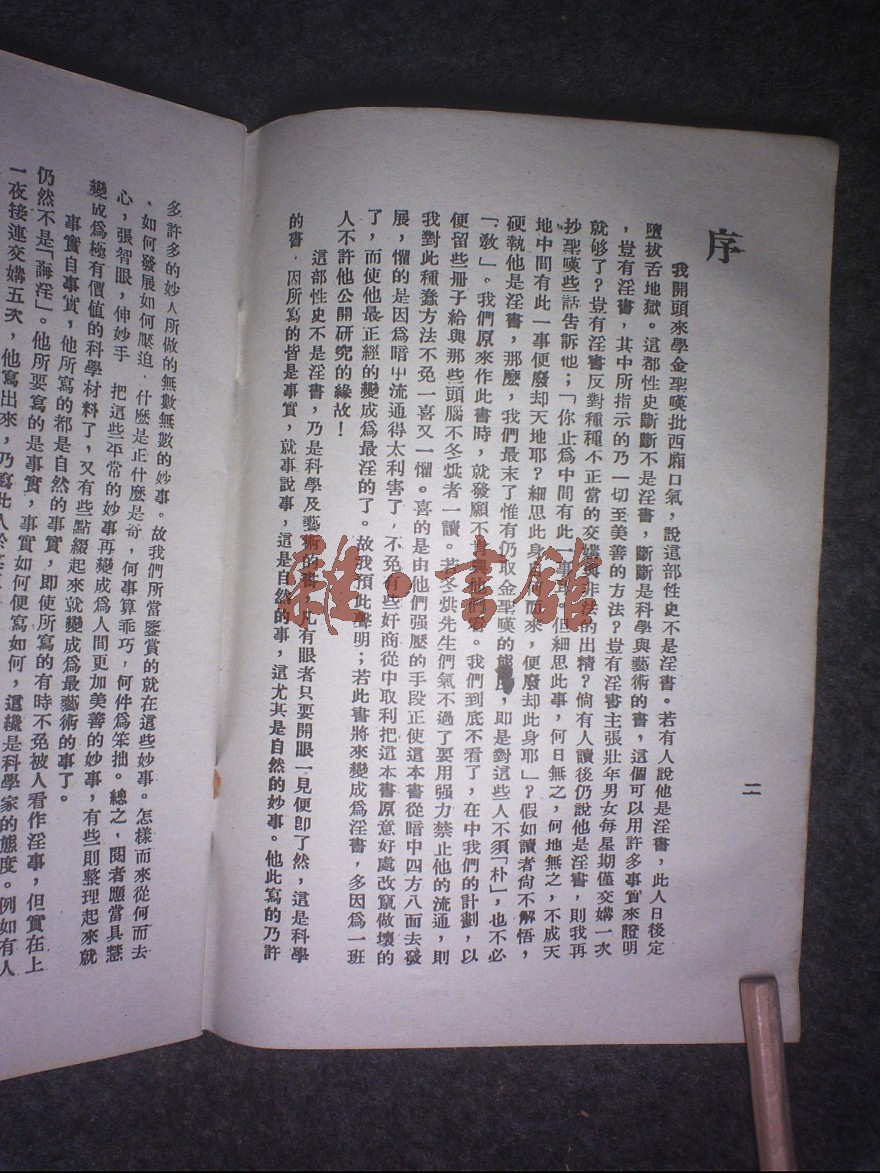 序
二
我開頭來學金聖嘆批西廂口氣，說這部性史不是淫書。若有人說他是淫書，此人日後定
墮拔舌地獄。這部性史斷斷不是淫書，斷斷是科學與藝術的書，這個可以用許多事實來證明
，豈有淫書，其中所指示的乃一切至美善的方法？豈有淫書主張壯年男女每星期僅交媾一次
就够了？豈有淫書反對種種不正當的交媾與非法的出精？倘有人讀後仍說他是淫書，則我再
抄聖嘆些話告訴他；「你止為中間有此一事耳，但細思此事，何日無之，何地無之，不成天
地中間有此一事便廢却天地耶？細思此身自何而來，便廢却此身耶」？假如讀者尙不解悟，
硬執他是淫書，那麽，我們最末了惟有仍取金聖嘆的態度，即是對這些人不須「朴」，也不必
「敎」。我們原來作此書時，就發願不肯與他們看。我們到底不看了，在中我們的計劃，以
便留些冊子給與那些頭腦不冬烘者一讀。若冬烘先生們氣不過了要用强力禁止他的流通，則
我對此種蠢方法不免一喜又一懼。喜的是由他們强壓的手段正使這本書從暗中四方八面去發
展，懼的是因爲暗中流通得太利害了，不免有些奸商從中取利把這本書原意好處改竄做壞的
了，而使他最正經的變成爲最淫的了。故我預此聲明；若此書將來變成爲淫書，多因爲一班
人不許他公開研究的緣故！
這部性史不是淫書，乃是科學及藝術的書，凡有眼者只要開眼一見便卽了然，這是科學
的書，因所寫的皆是事實，就事說事，這是自然的事，這尤其是自然的妙事。他此寫的乃許
多許多的妙人所做的無數無數的妙事。故我們所當鑒賞的就在這些妙事。怎樣而來從何而去
、如何發展如何壓迫，什麽是正什麽是奇，何事算乖巧，何件爲笨拙。總之，閱者應當具慧
心，張智眼，伸妙手 把這些平常的妙事再變成爲人間更加美善的妙事，有些則整理起來就
變成爲極有價值的科學材料了，又有些點綴起來就變成爲最藝術的事了。
事實自事實，他所寫的都是自然的事實，即使所寫的有時不免被人看作淫事，但實在上
仍然不是「誨淫」。他所要寫的是事實，事實如何便寫如何，這纔是科學家的態度。例如有人
一夜接連交媾五次，他寫出來，乃寫此人於
雜·書館